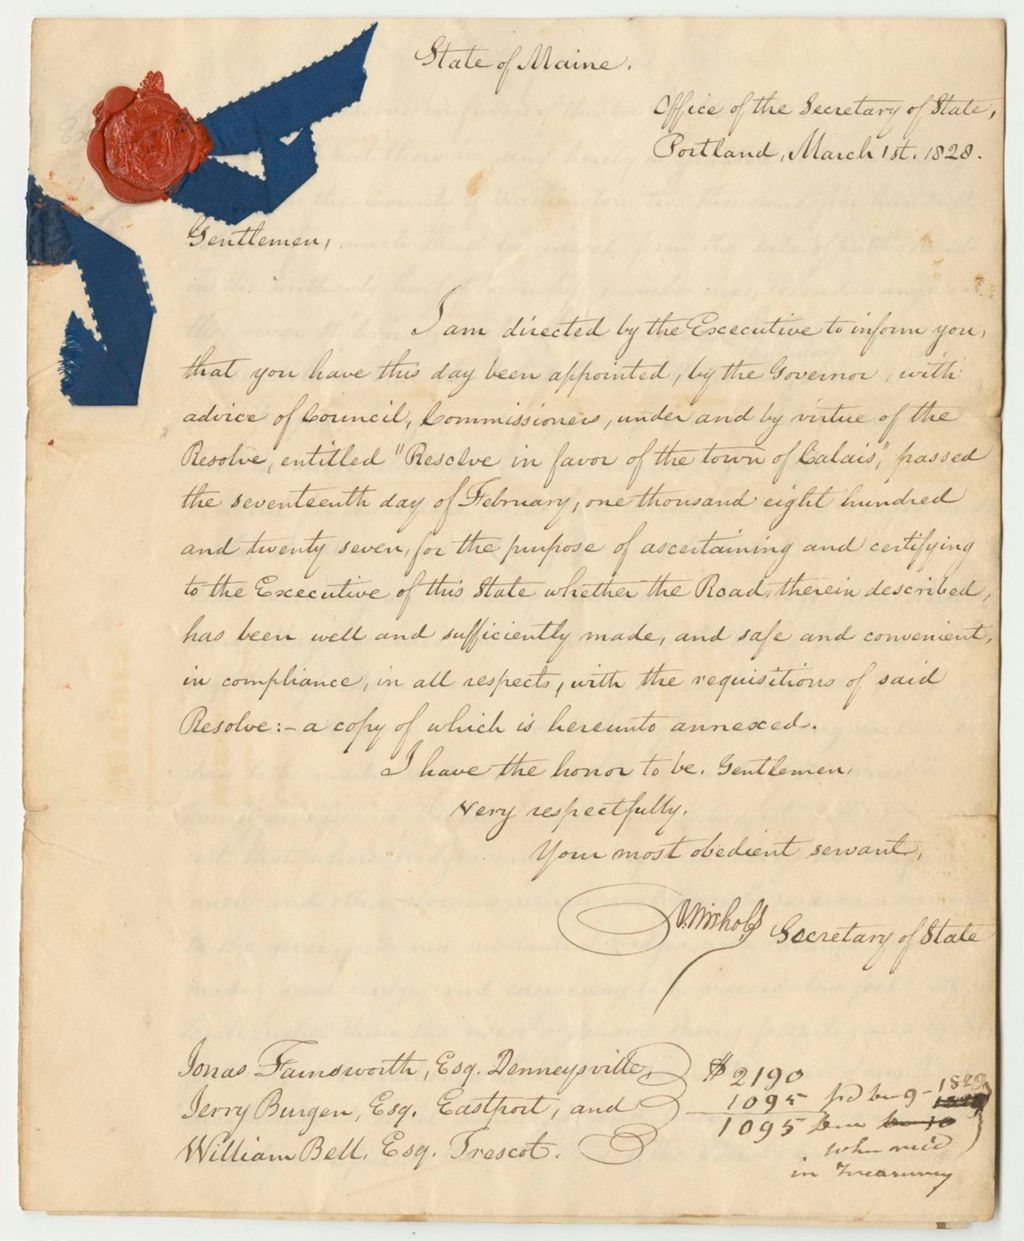 State of Maine.
Office of the Secretary of State,
Portland, March 1st. 1828.
Gentlemen,
I am directed by the Executive to inform you,
that you have this day been appointed, by the Governor, with
advice of Council, Commissioners, under and by virtue of the
Resolve, entitled "Resolve in favor of the town of Calais," passed
the seventeenth day of February, one thousand eight hundred
and twenty seven, for the purpose of ascertaining and certifying
to the Executive of this State whether the Road, therein described,
has been well and sufficiently made, and safe and convenient,
in compliance, in all respects, with the requisitions of said
Resolve:- a copy of which is hereunto annexed.
I have the honor to be, Gentlemen,
Very respectfully,
Your most obedient servant,
A. Nichols Secretary of State
Jonas Farnsworth, Esq. Denneysville,
Jerry Burgen, Esq. Eastport, and
William Bell, Esq. Trescot.
$ 2190
1095 pd 9- 1828
1095
when rec'd
in Treasury